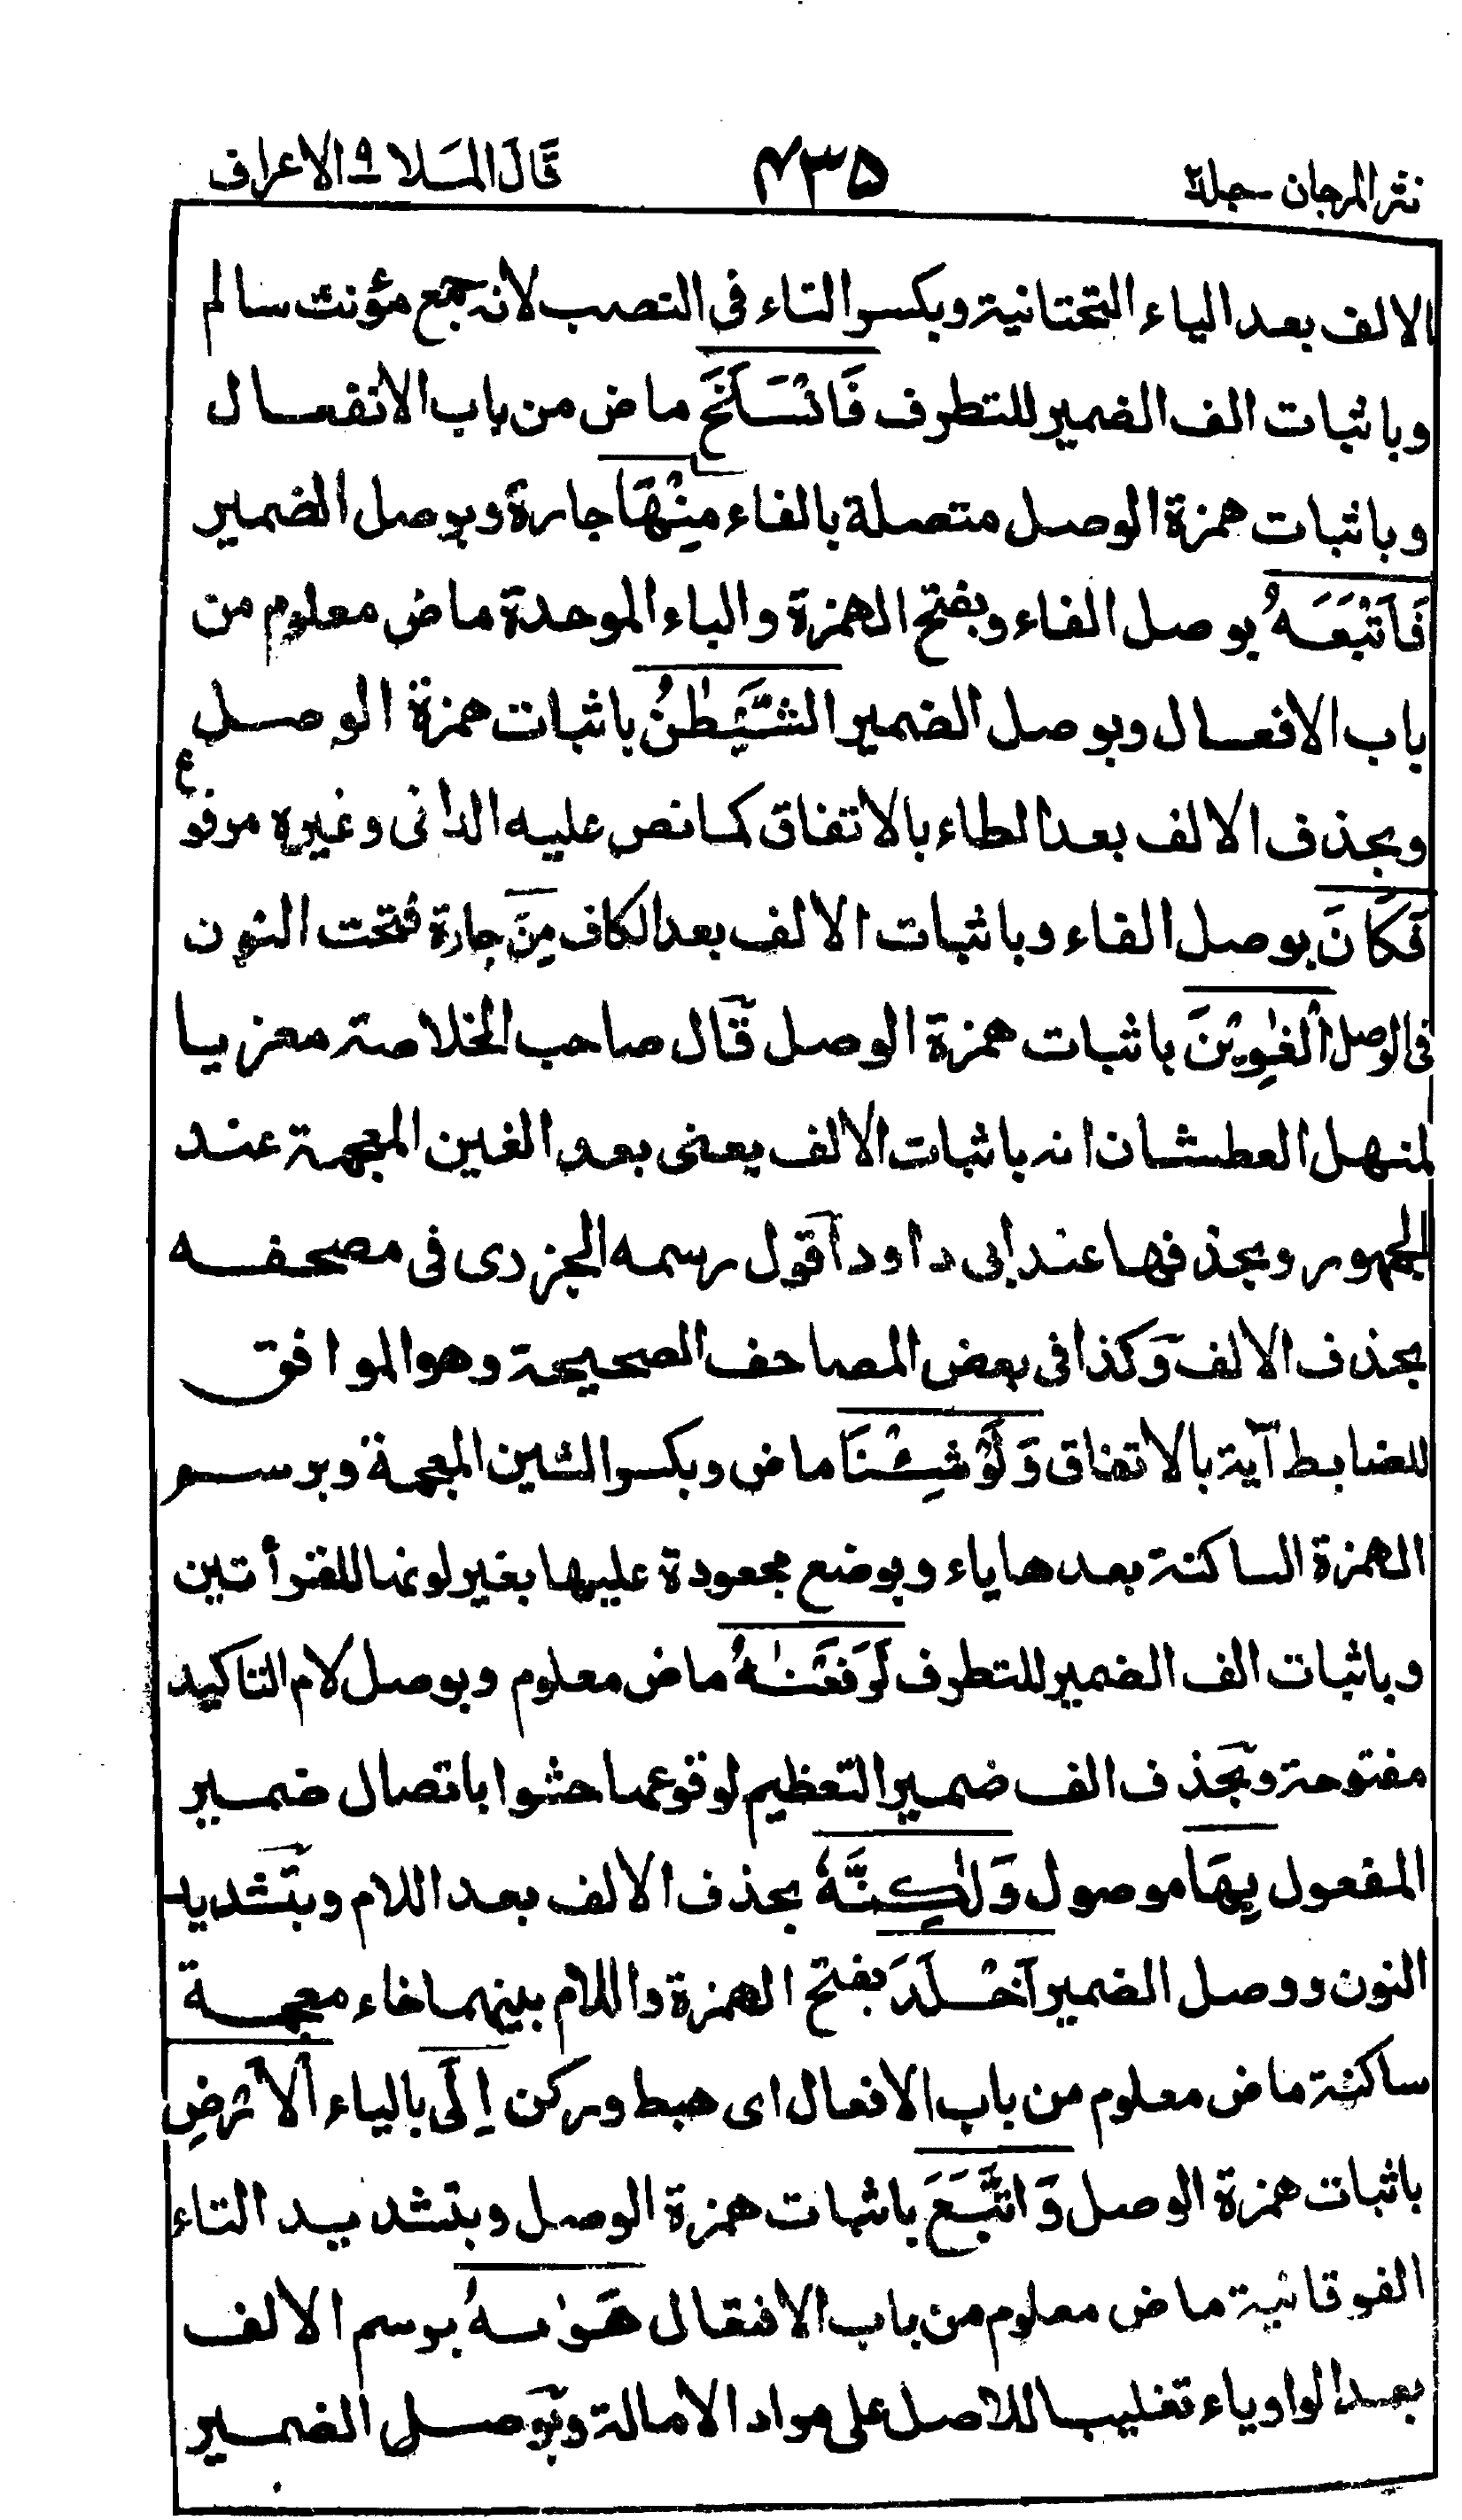 نثر المرجان جلد٢
٤٣٥
قَالَ المَلا ٩ الاعراف
الالف بعد الياء التحتانية وبكسر التاء فى النصب لانه جمع مؤنث سالم
وباثبات الف الضمير للتطرف فَانْسَلَخَ ماض من باب الانفعال
وباثبات همزة الوصل متصلة بالفاء مِنْهَا جارة وبوصل الضمير
فَاَتْبَعَهُ بوصل الفاء وبفتح الهمزة والباء الموحدة ماض معلوم من
باب الافعال وبوصل الضمير الشَّيْطٰنُ باثبات همزة الوصل
وبحذف الالف بعد الطاء بالاتفاق كما نص عليه الدانى وغيره مرفوع
فَكَانَ بوصل الفاء وباثبات الالف بعد الكاف مِنَ جارة فتحت النون
فى الوصل الْغٰوِيْنَ باثبات همزة الوصل قال صاحب الخلاصة معزيا
لمنهل العطشان انه باثبات الالف يعنى بعد الغين المعجمة عند
الجمهور وبحذفها عند ابى داود اقول رسمه الجزرى فى مصحفه
بحذف الالف وكذا فى بعض المصاحف الصحيحة وهو الموافق
للضابط آية بالاتفاق وَلَوْ شِئْنَا ماض وبكسر الشين المعجمة وبرسم
الهمزة الساكنة بعدها ياء وبوضع مجعودة عليها بغير لونها للقرأتين
وباثبات الف الضمير للتطرف لَرَفَعْنٰهُ ماض معلوم وبوصل لام التاكيد
مفتوحة وبحذف الف ضمير التعظيم لوقوعها حشوا باتصال ضمير
المفعول بِهَا موصول وَلٰكِنَّهٗ بحذف الالف بعد اللام وبتشديد
النون ووصل الضمير اَخْلَدَ بفتح الهمزة واللام بينهما خاء معجمة
ساكنة ماض معلوم من باب الافعال اى هبط وركن اِلَى بالياء الْاَرْضِ
باثبات همزة الوصل وَاتَّبَعَ باثبات همزة الوصل وبتشديد التاء
الفوقانية ماض معلوم من باب الافتعال هَوٰىهُ برسم الالف
بعد الواو ياء تغليبا للاصل على مراد الامالة وبوصل الضمير